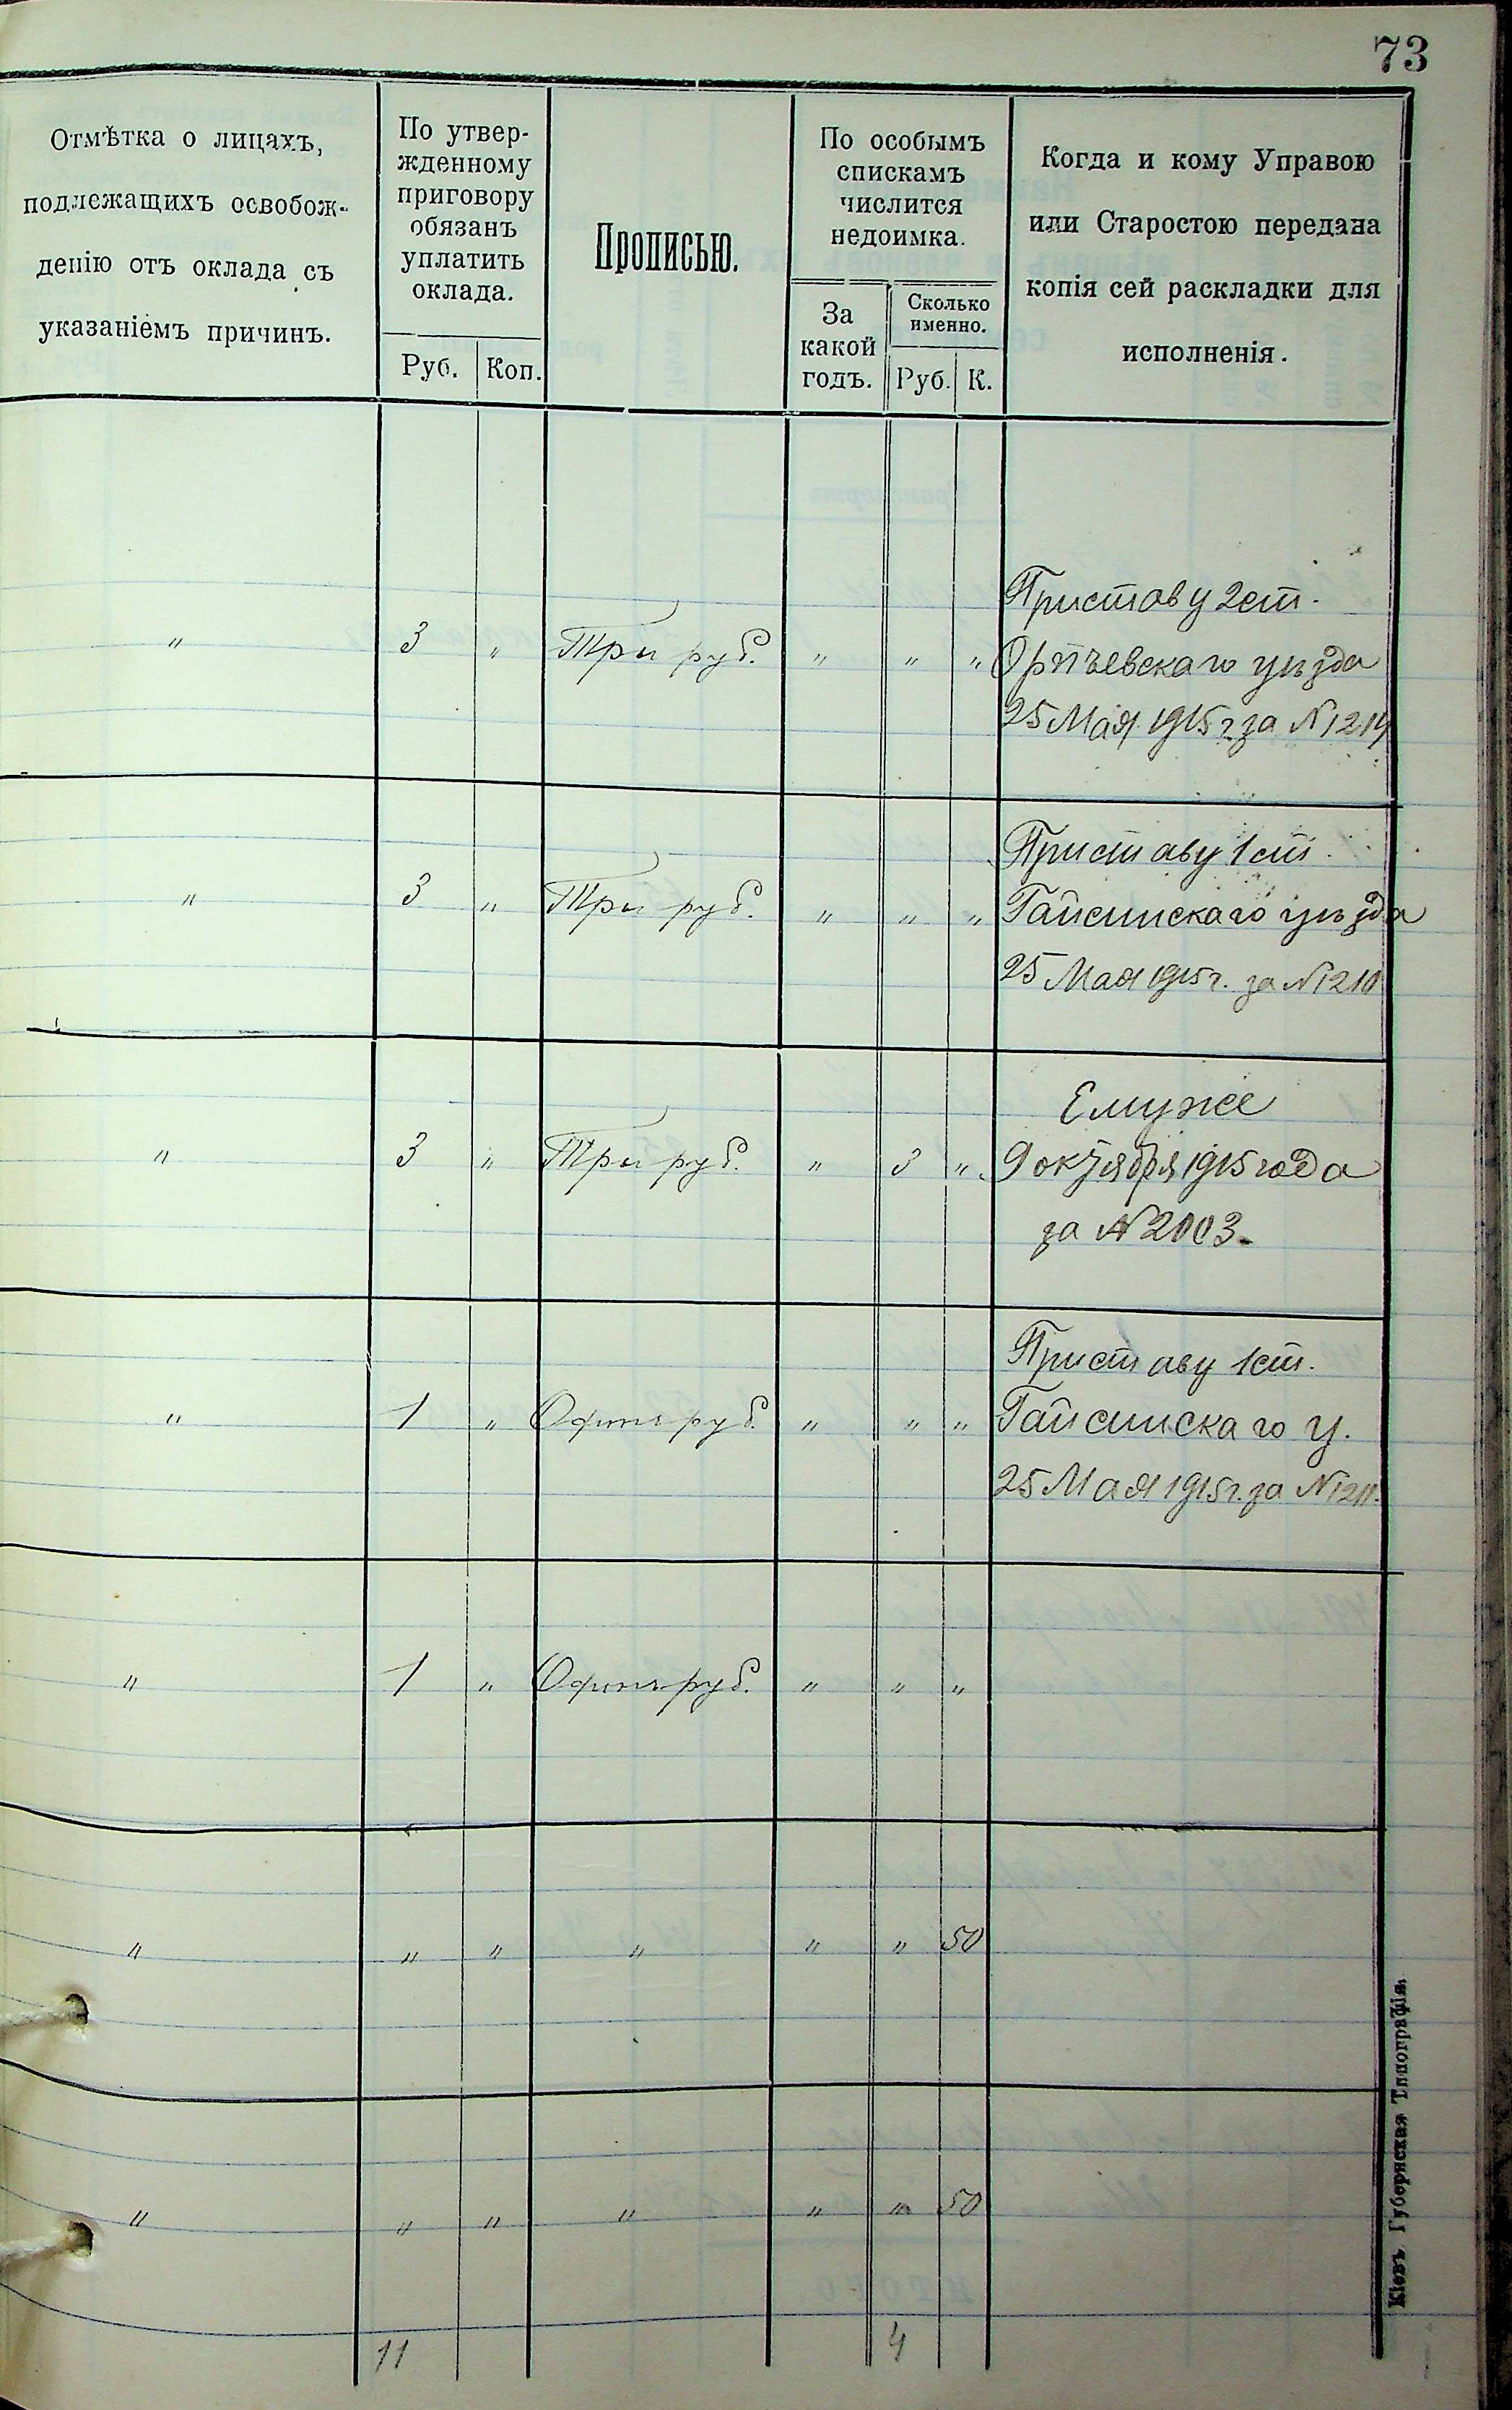 73
Отмѣтка о лицахъ,
подлежащихъ освобож-
денію отъ оклада съ
указаніемъ причинъ.
По утвер-
жденному
приговору
обязанъ
уплатить
оклада.
Руб. Коп.
Прописью.
По особымъ
спискамъ
числится
недоимка.
За
какой
годъ.
Сколько
именно.
Руб. К.
Когда и кому Управою
или Старостою передана
копія сей раскладки для
исполненія.
Приставу 2 ст.
" 3 " Три руб. " " " уѣзда
25 Мая 1915 г. за N 1214
Приставу 1 ст.
" 3 " Три руб. " " " Гайсинскаго уѣзда
25 Мая 1915 г. за N 1210
Ему же
" 3 " Три руб. " 3 " 9 октября 1915 года
за N 2003.
Приставу 1 ст.
" 1 " Одинъ руб. " " " Гайсинскаго у.
25 Мая 1915 г. за N 1211.
" 1 " Одинъ руб. " " "
" " " " " " 50
" " " " " " 50
11 4
Кіевъ. Губернская Типографія.